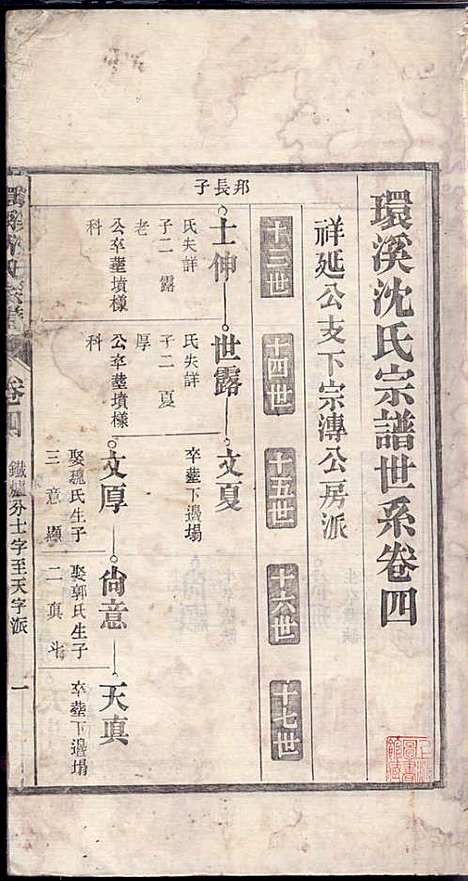 環溪沈氏宗譜世系卷四
祥延公支下宗傳公房派
十三世
十四世
十五世
十六世
十七世
邦長子
士伸
氏失詳
子二 露
老
公卒塟墳樣
科
世露
氏失詳
子二 夏
厚
公卒塟墳樣
科
文夏
卒塟下邊塌
文厚
娶魏氏生子
三 意 顯
尙意
娶郭氏生子
二 真 斗
天真
卒塟下邊塌
卷四
鐵爐分士字至天字派
一